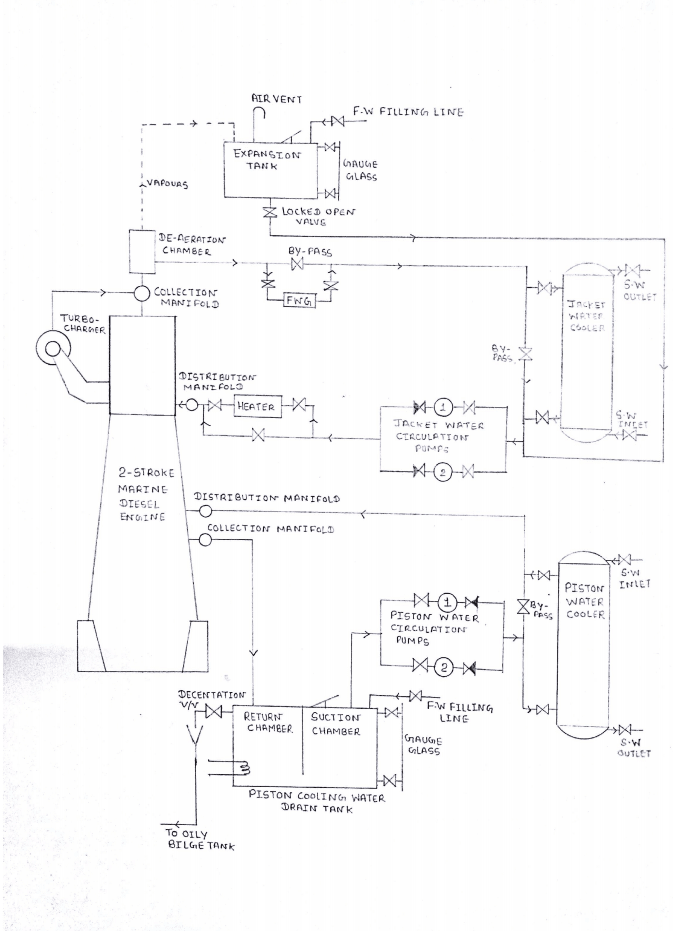 AIR VENT
F.W FILLING LINE
EXPANSION
TANK
GAUGE
GLASS
VAPOURS
LOCKED OPEN
VALVE
DE-AERATION
CHAMBER
BY-PASS
FWG
COLLECTION
MANIFOLD
S.W
OUTLET
JACKET
WATER
COOLER
TURBO-
CHARGER
BY-
PASS
DISTRIBUTION
MANIFOLD
HEATER
1
JACKET WATER
CIRCULATION
PUMPS
2
S.W
INLET
2-STROKE
MARINE
DIESEL
ENGINE
DISTRIBUTION MANIFOLD
COLLECTION MANIFOLD
S.W
INLET
PISTON
WATER
COOLER
BY-
PASS
1
PISTON WATER
CIRCULATION
PUMPS
2
DECENTATION
V/V
F.W FILLING
LINE
RETURN
CHAMBER
SUCTION
CHAMBER
GAUGE
GLASS
S.W
OUTLET
PISTON COOLING WATER
DRAIN TANK
TO OILY
BILGE TANK